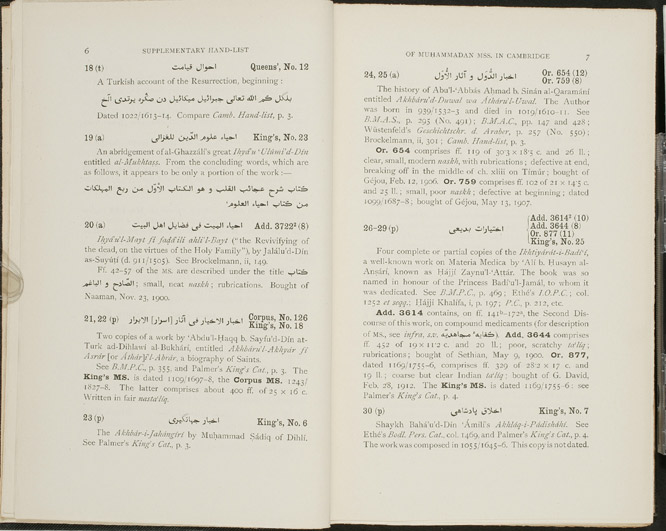 6 SUPPLEMENTARY HAND-LIST
18 (t) احوال قيامت Queens', No. 12
A Turkish account of the Resurrection, beginning :
Dated 1022/1613–14. Compare Camb. Hand-list, p. 3.
19 (a) احياء علوم الدين للغزالي King's, No. 23
An abridgement of al-Ghazzálí's great Iḥyá'u 'Ulúmi'd-Dín
entitled al-Mukhtaṣṣ. From the concluding words, which are
as follows, it appears to be only a portion of the work :—
كتاب شرح عجائب القلب و هو الكتاب الأوّل من ربع المهلكات
من كتاب احياء العلوم،
20 (a) احياء الميت في فضايل اهل البيت Add. 3722² (8)
Iḥyá'u'l-Mayt fí faḍá'ili ahli'l-Bayt ("the Revivifying of
the dead, on the virtues of the Holy Family"), by Jalálu'd-Dín
as-Suyúṭí (d. 911/1505). See Brockelmann, ii, 149.
Ff. 42–57 of the MS. are described under the title كتاب
الصادح و الباغم; small, neat naskh; rubrications. Bought of
Naaman, Nov. 23, 1900.
21, 22 (p) اخبار الاخيار في آثار [اسرار] الابرار Corpus, No. 126
King's, No. 18
Two copies of a work by 'Abdu'l-Ḥaqq b. Sayfu'd-Dín at-
Turk ad-Dihlawí al-Bukhárí, entitled Akhbáru'l-Akhyár fí
Asrár [or Áthár]i'l-Abrár, a biography of Saints.
See B.M.P.C., p. 355, and Palmer's King's Cat., p. 3. The
King's MS. is dated 1109/1697–8, the Corpus MS. 1243/
1827–8. The latter comprises about 400 ff. of 25 × 16 c.
Written in fair nasta'líq.
23 (p) اخبار جهانگيرى King's, No. 6
The Akhbár-i-Jahángírí by Muḥammad Ṣádiq of Dihlí.
See Palmer's King's Cat., p. 3.
OF MUHAMMADAN MSS. IN CAMBRIDGE 7
24, 25 (a) اخبار الدُّوَل و آثار الأوَل Or. 654 (12)
Or. 759 (8)
The history of Abu'l-'Abbás Aḥmad b. Sinán al-Qaramání
entitled Akhbáru'd-Duwal wa Átháru'l-Uwal. The Author
was born in 939/1532–3 and died in 1019/1610–11. See
B.M.A.S., p. 295 (No. 491); B.M.A.C., pp. 147 and 428;
Wüstenfeld's Geschichtschr. d. Araber, p. 257 (No. 550);
Brockelmann, ii, 301; Camb. Hand-list, p. 3.
Or. 654 comprises ff. 119 of 30·3 × 18·5 c. and 26 ll.;
clear, small, modern naskh, with rubrications; defective at end,
breaking off in the middle of ch. xliii on Tímúr; bought of
Géjou, Feb. 12, 1906. Or. 759 comprises ff. 102 of 21 × 14·5 c.
and 25 ll.; small, poor naskh; defective at beginning; dated
1099/1687–8; bought of Géjou, May 13, 1907.
26–29 (p) اختيارات بديعى Add. 3614² (10)
Add. 3644 (8)
Or. 877 (11)
King's, No. 25
Four complete or partial copies of the Ikhtiyárát-i-Badí'í,
a well-known work on Materia Medica by 'Alí b. Ḥusayn al-
Anṣárí, known as Ḥájjí Zaynu'l-'Aṭṭár. The book was so
named in honour of the Princess Badí'u'l-Jamál, to whom it
was dedicated. See B.M.P.C., p. 469; Ethé's I.O.P.C.; col.
1252 et seqq.; Ḥájjí Khalífa, i, p. 197; P.C., p. 212, etc.
Add. 3614 contains, on ff. 141b–172a, the Second Dis-
course of this work, on compound medicaments (for description
of MS., see infra, s.v. كفايهٔ مجاهديّه). Add. 3644 comprises
ff. 452 of 19 × 11·2 c. and 20 ll.; poor, scratchy ta'líq;
rubrications; bought of Sethian, May 9, 1900. Or. 877,
dated 1169/1755–6, comprises ff. 329 of 28·2 × 17 c. and
19 ll.; coarse but clear Indian ta'líq; bought of G. David,
Feb. 28, 1912. The King's MS. is dated 1169/1755–6: see
Palmer's King's Cat., p. 4.
30 (p) اخلاق پادشاهى King's, No. 7
Shaykh Bahá'u'd-Dín 'Ámilí's Akhláq-i-Pádisháhí. See
Ethé's Bodl. Pers. Cat., col. 1469, and Palmer's King's Cat., p. 4.
The work was composed in 1055/1645–6. This copy is not dated.